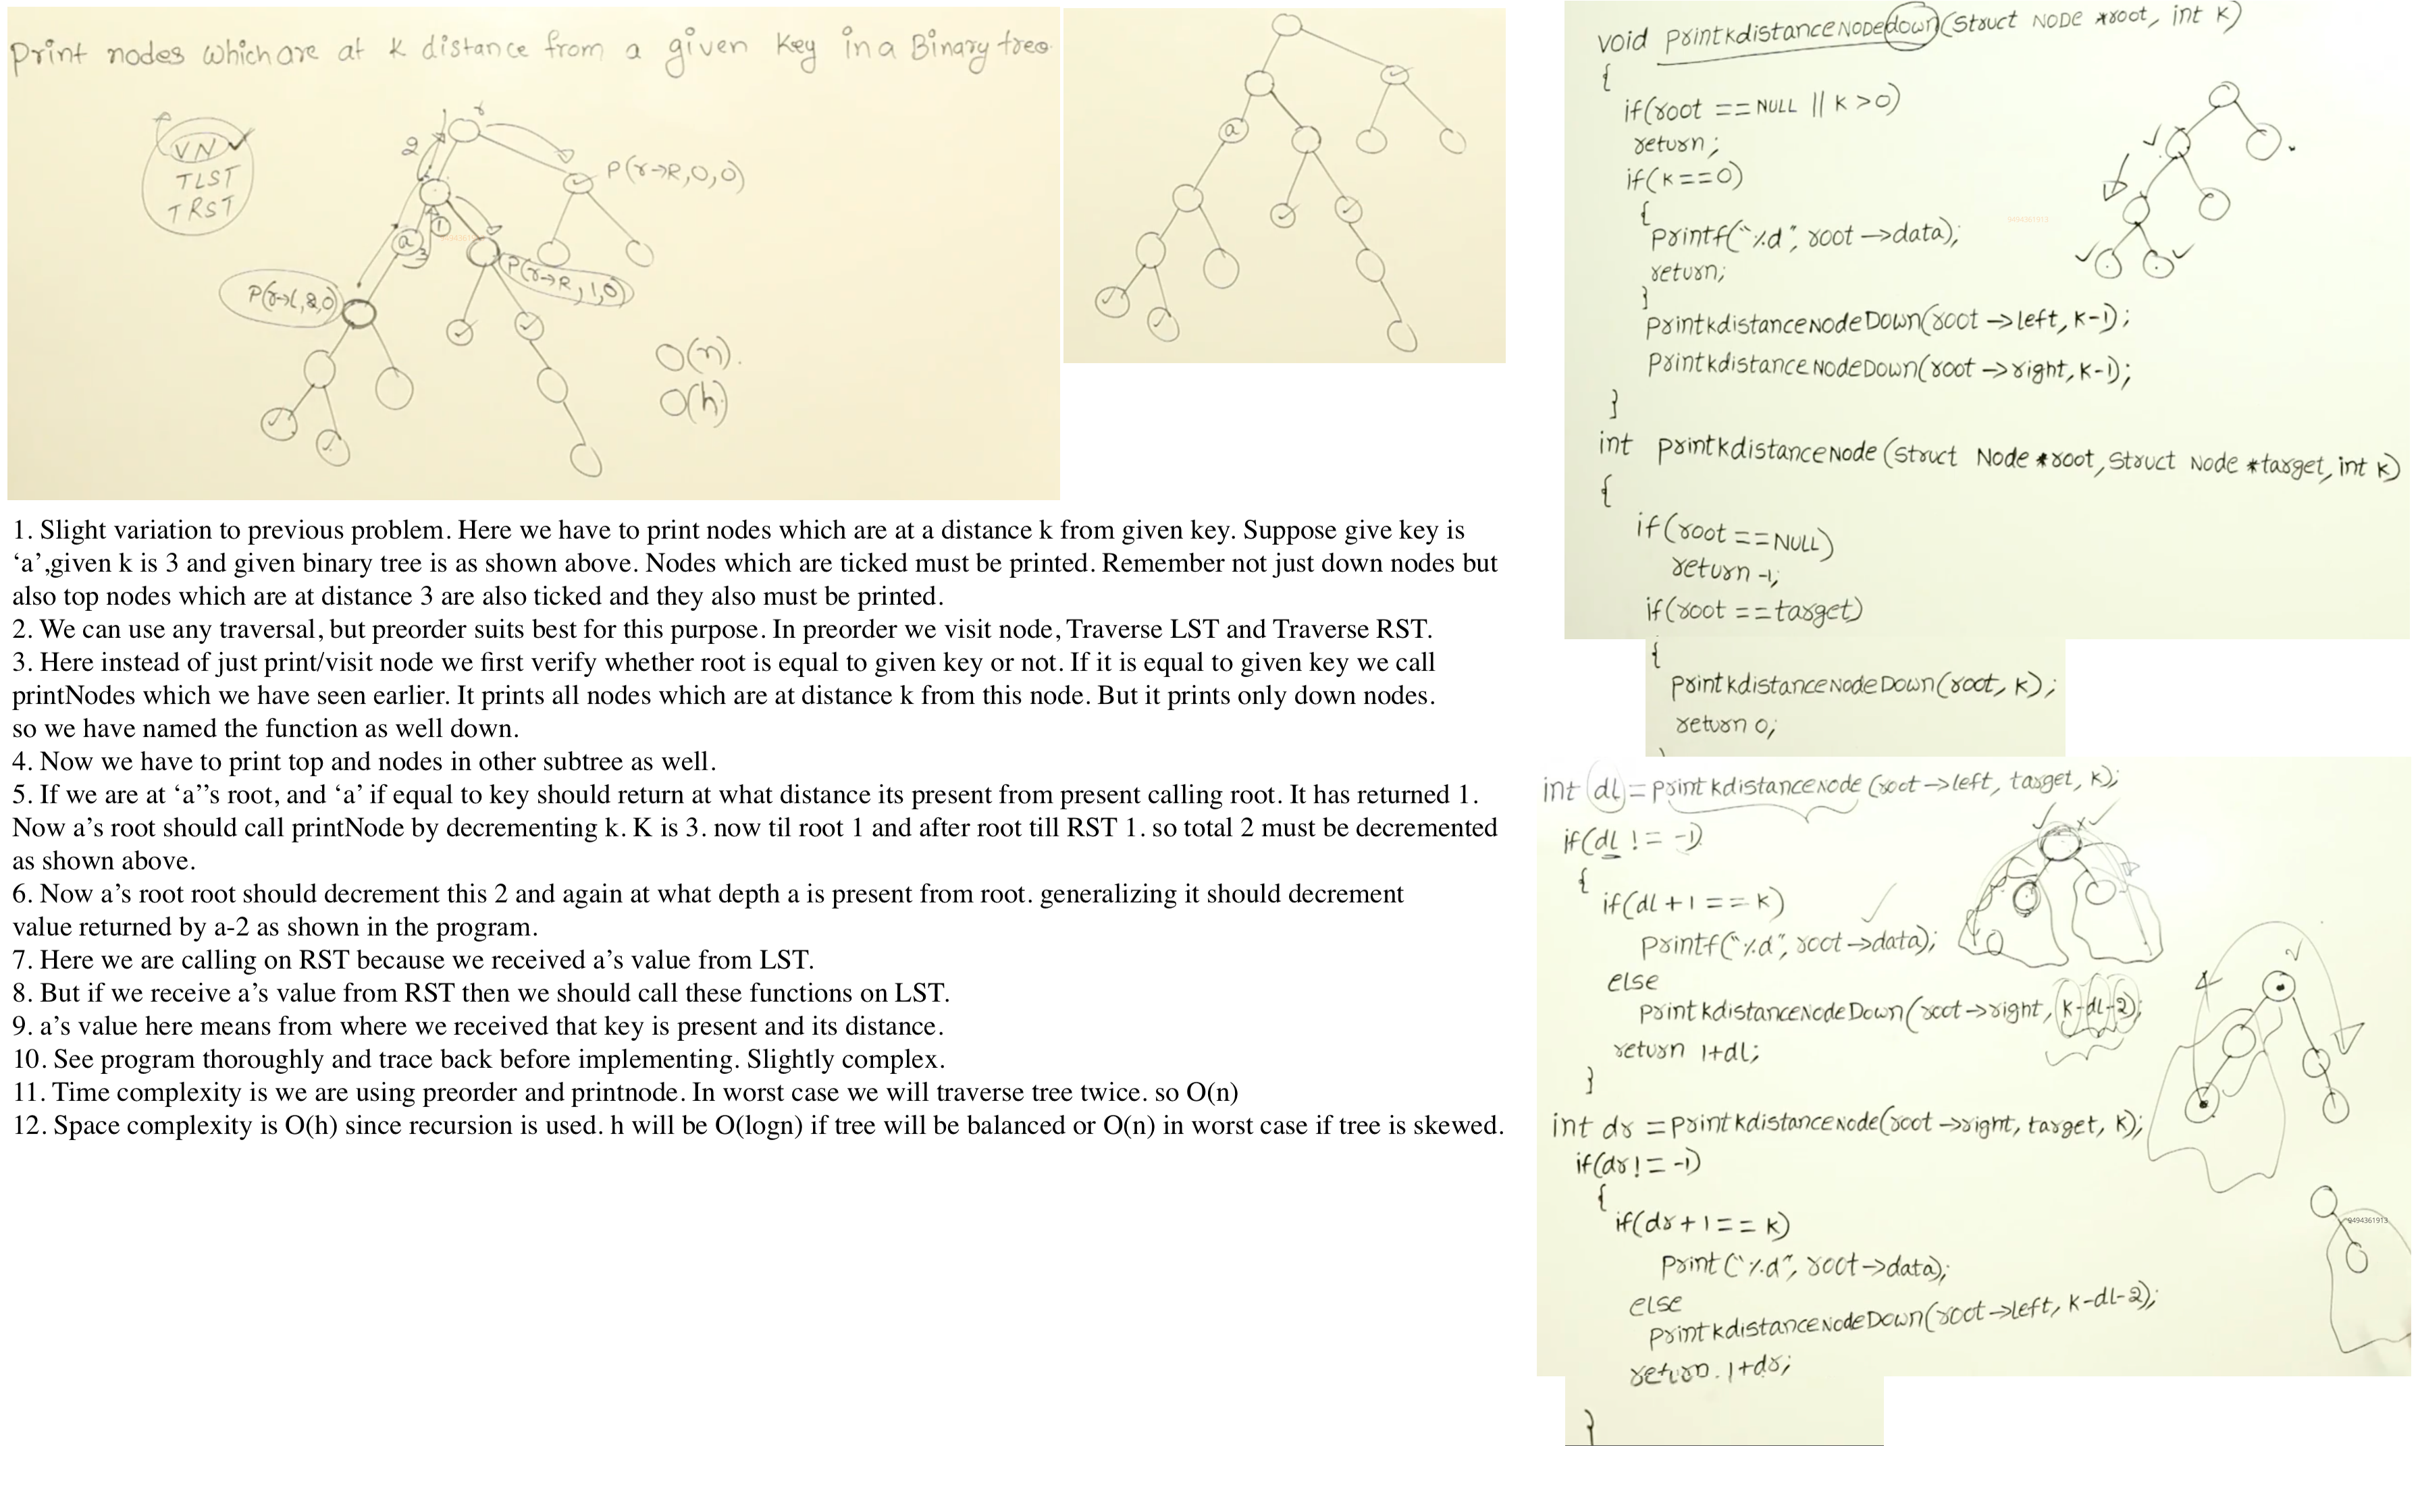 Print nodes which are at k distance from a given key in a Binary tree
VN
TLST
TRST
2
r
P(r→R,0,0)
a
1
3
P(r→R,1,0)
P(r→L,2,0)
O(n).
O(h)
a
1. Slight variation to previous problem. Here we have to print nodes which are at a distance k from given key. Suppose give key is
‘a’,given k is 3 and given binary tree is as shown above. Nodes which are ticked must be printed. Remember not just down nodes but
also top nodes which are at distance 3 are also ticked and they also must be printed.
2. We can use any traversal, but preorder suits best for this purpose. In preorder we visit node, Traverse LST and Traverse RST.
3. Here instead of just print/visit node we first verify whether root is equal to given key or not. If it is equal to given key we call
printNodes which we have seen earlier. It prints all nodes which are at distance k from this node. But it prints only down nodes.
so we have named the function as well down.
4. Now we have to print top and nodes in other subtree as well.
5. If we are at ‘a’’s root, and ‘a’ if equal to key should return at what distance its present from present calling root. It has returned 1.
Now a’s root should call printNode by decrementing k. K is 3. now til root 1 and after root till RST 1. so total 2 must be decremented
as shown above.
6. Now a’s root root should decrement this 2 and again at what depth a is present from root. generalizing it should decrement
value returned by a-2 as shown in the program.
7. Here we are calling on RST because we received a’s value from LST.
8. But if we receive a’s value from RST then we should call these functions on LST.
9. a’s value here means from where we received that key is present and its distance.
10. See program thoroughly and trace back before implementing. Slightly complex.
11. Time complexity is we are using preorder and printnode. In worst case we will traverse tree twice. so O(n)
12. Space complexity is O(h) since recursion is used. h will be O(logn) if tree will be balanced or O(n) in worst case if tree is skewed.
void printkdistanceNodedown(Struct NODE *root, int k)
{
if(root == NULL || k >0)
return;
if(k==0)
{
printf("%d", root→data);
return;
}
printkdistanceNodeDown(root→left, k-1);
printkdistanceNodeDown(root→right, k-1);
}
int printkdistanceNode(Struct Node *root, Struct Node *target, int k)
{
if(root ==NULL)
return -1;
if(root ==target)
{
printkdistanceNodeDown(root, k);
return 0;
int dl=printkdistanceNode(root→left, target, k);
if(dl != -1)
{
if(dl+1 == k)
printf("%d", root→data);
else
printkdistanceNodeDown(root→right, k-dl-2);
return 1+dl;
}
int dr =printkdistanceNode(root→right, target, k);
if(dr != -1)
{
if(dr+1 == k)
print("%d", root→data);
else
printkdistanceNodeDown(root→left, k-dl-2);
return.1+dr;
}
4
9494361913
9494361913